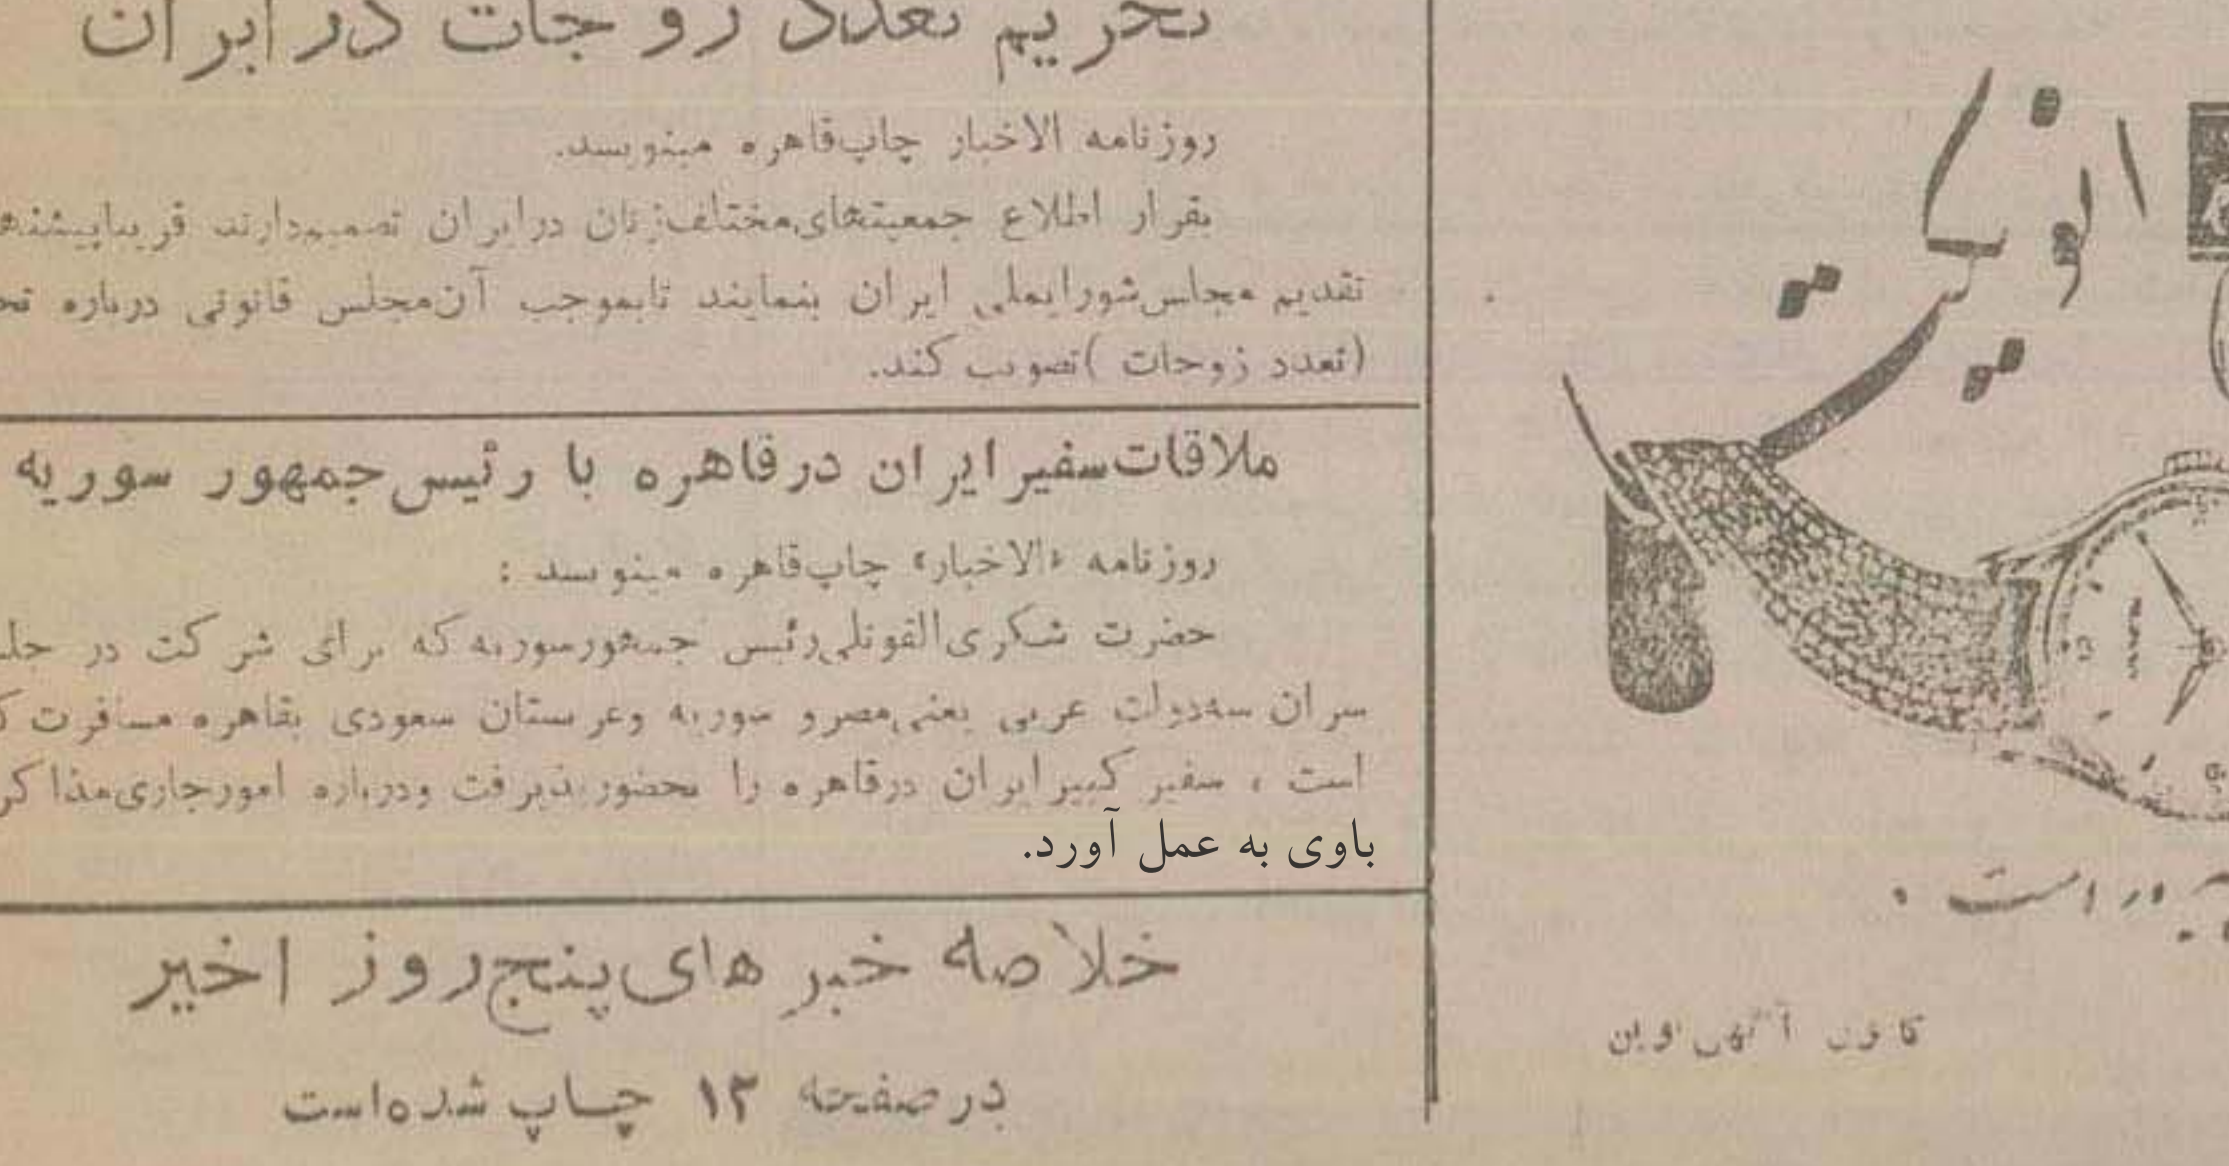 تحریم تعدد زوجات در ایران
روزنامه الاخبار چاپ‌قاهره مینویسد.
بقرار اطلاع جمعیتهای‌مختلف‌زنان درایران تصمیم‌دارند قریباپیشنه
تقدیم مجلس‌شورایملی ایران بنمایند تابموجب آن‌مجلس قانونی درباره تح
(تعدد زوجات )تصویب کند.
ملاقات‌سفیر ایران درقاهره با رئیس‌جمهور سوریه
روزنامه «الاخبار» چاپ‌قاهره مینویسد :
حضرت شکری‌القوتلی‌رئیس جمهورسوریه که برای شرکت در جل
سران سه‌دولت عربی یعنی‌مصرو سوریه وعربستان سعودی بقاهره مسافرت ک
است ، سفیر کبیر ایران درقاهره را بحضور پذیرفت ودرباره امورجاری‌مذاکر
باوی به عمل آورد.
خلاصه خبر های‌پنج‌روز اخیر
در صفحه ۱۲ چاپ شده‌است
است .
کانون آگهی